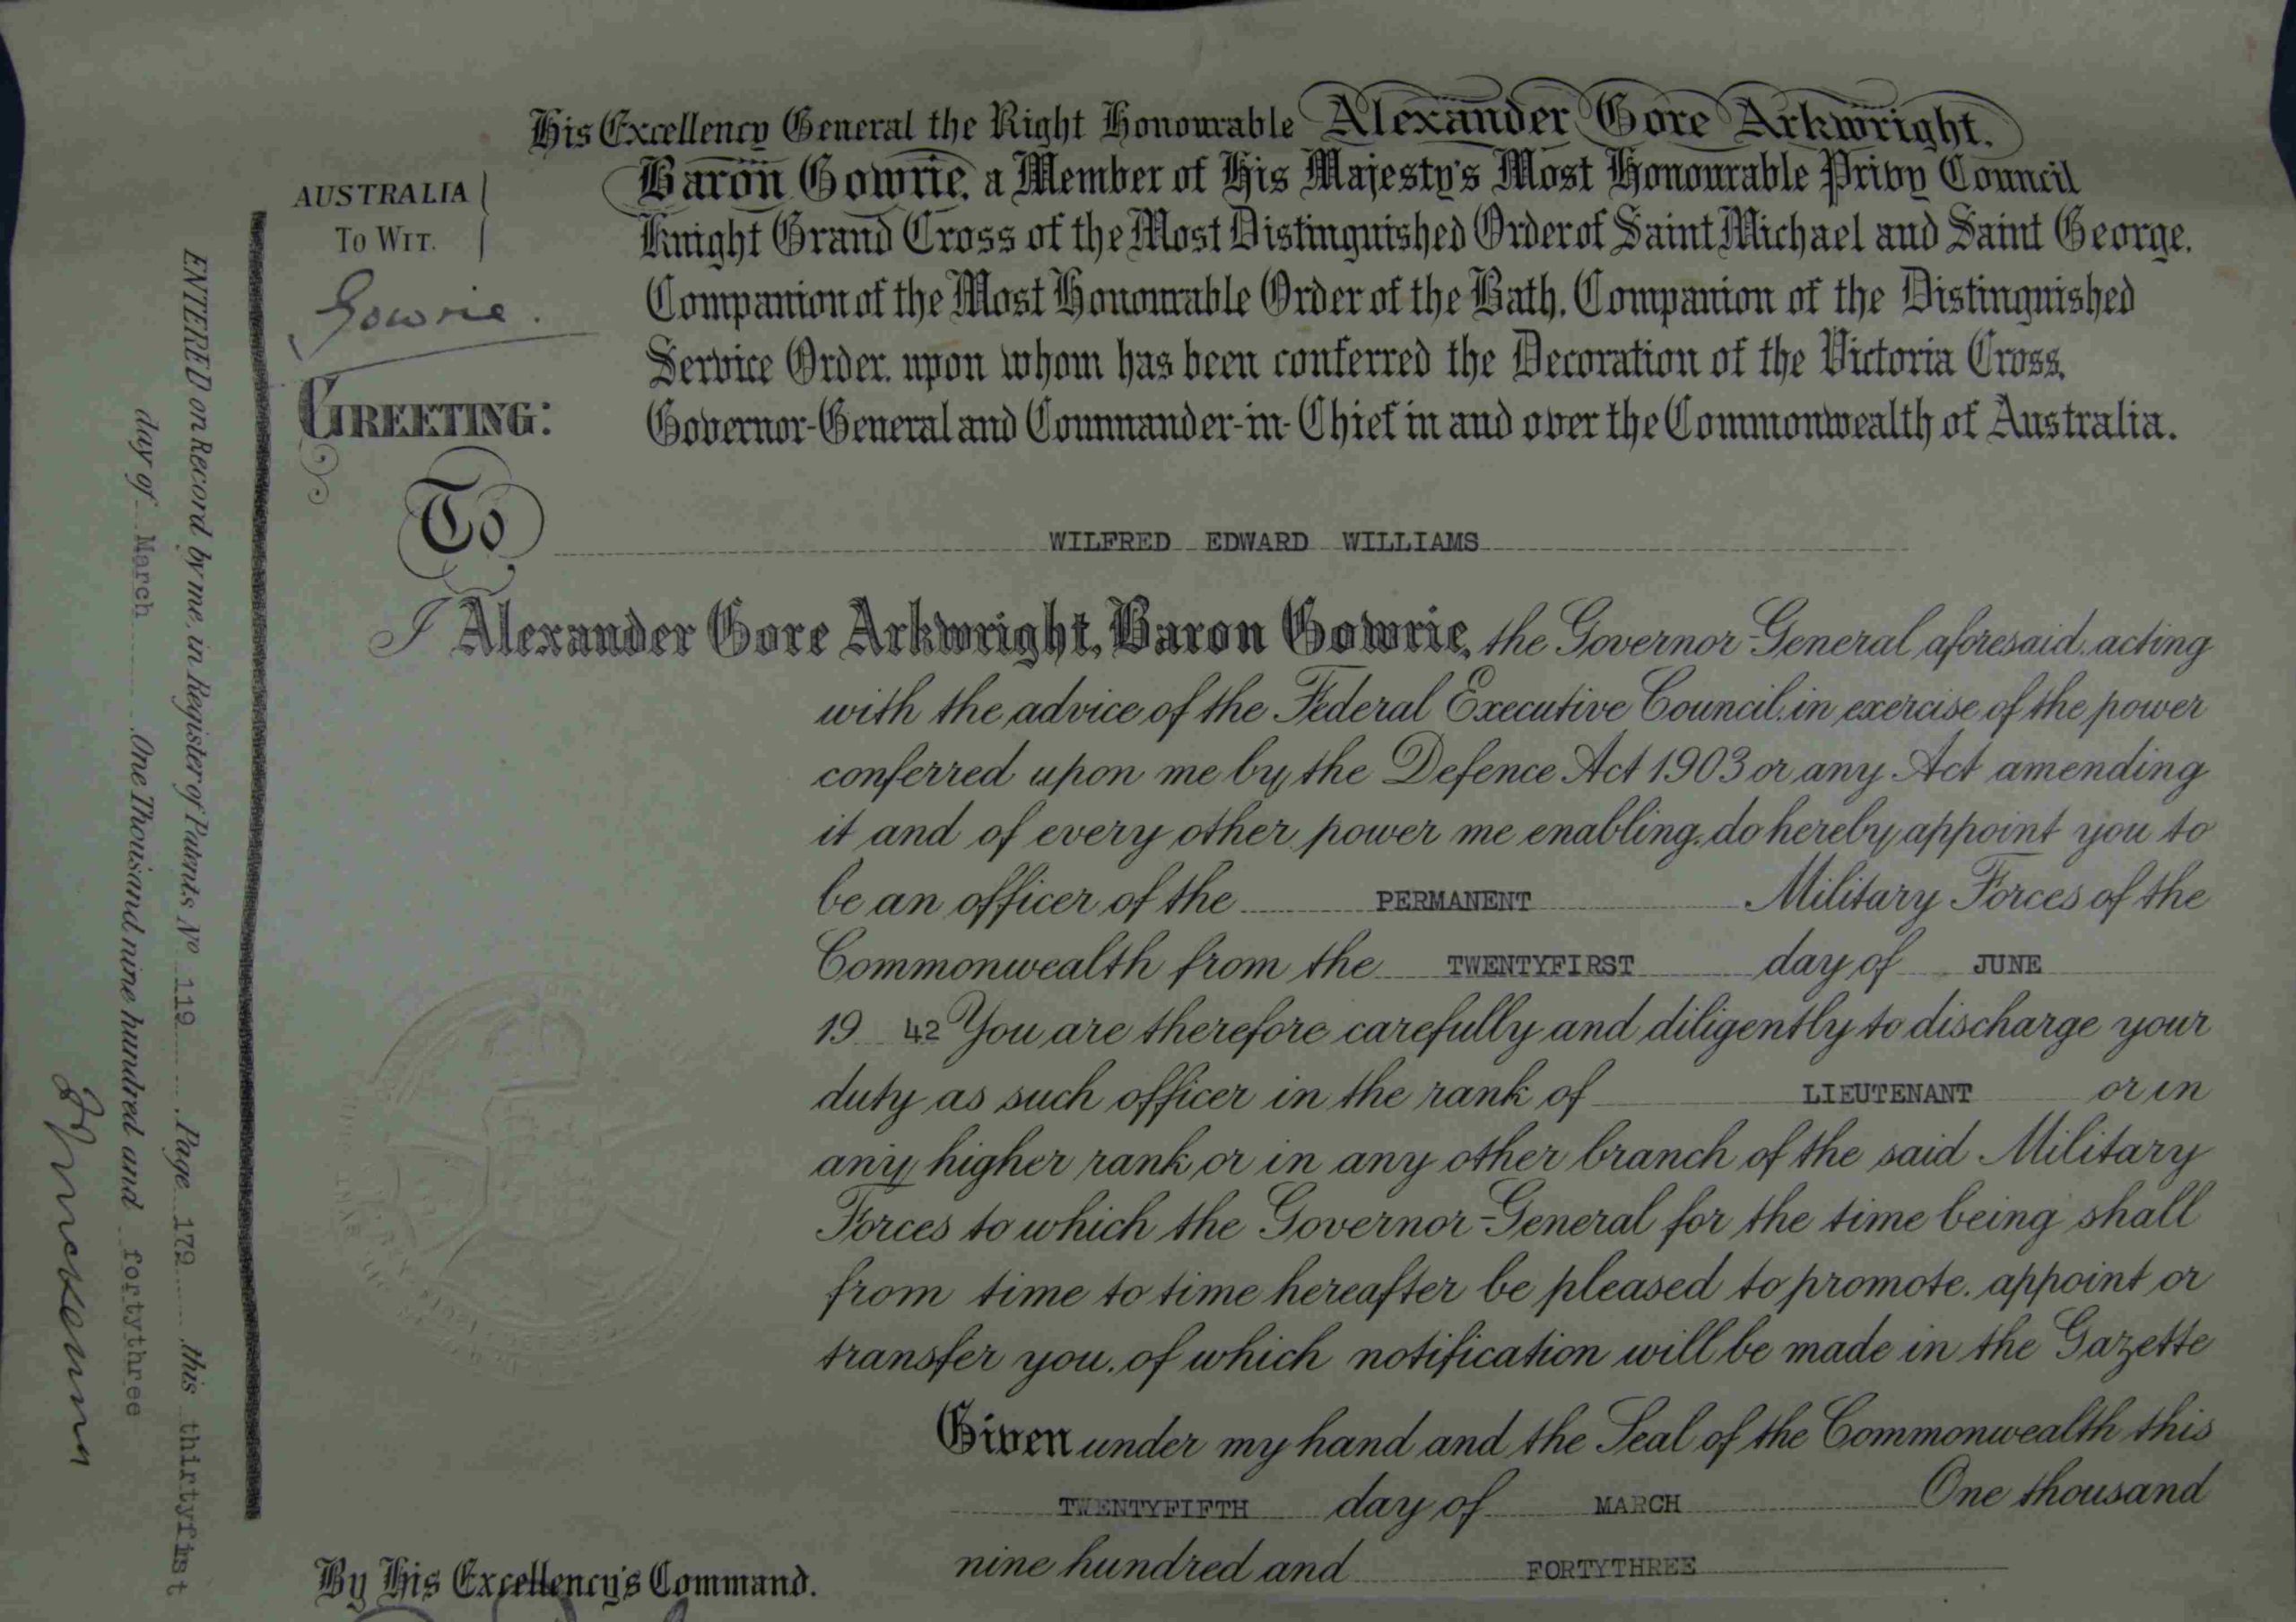 His Excellency General the Right Honourable Alexander Gore Arkwright,
Baron Gowrie, a Member of His Majesty's Most Honourable Privy Council
Knight Grand Cross of the Most Distinguished Order of Saint Michael and Saint George,
Companion of the Most Honourable Order of the Bath, Companion of the Distinguished
Service Order, upon whom has been conferred the Decoration of the Victoria Cross,
Governor-General and Commander-in-Chief in and over the Commonwealth of Australia.
AUSTRALIA
To Wit.
Gowrie.
GREETING:
To WILFRED EDWARD WILLIAMS
I Alexander Gore Arkwright, Baron Gowrie, the Governor-General aforesaid, acting
with the advice of the Federal Executive Council, in exercise of the power
conferred upon me by the Defence Act 1903 or any Act amending
it and of every other power me enabling, do hereby appoint you to
be an officer of the PERMANENT Military Forces of the
Commonwealth from the TWENTYFIRST day of JUNE
19 42 You are therefore carefully and diligently to discharge your
duty as such officer in the rank of LIEUTENANT or in
any higher rank or in any other branch of the said Military
Forces to which the Governor-General for the time being shall
from time to time hereafter be pleased to promote, appoint or
transfer you, of which notification will be made in the Gazette
Given under my hand and the Seal of the Commonwealth this
TWENTYFIFTH day of MARCH One thousand
nine hundred and FORTYTHREE
By His Excellency's Command.
ENTERED on Record by me, in Register of Patents No 119 Page 179 this thirtyfirst
day of March One Thousand nine hundred and fortythree